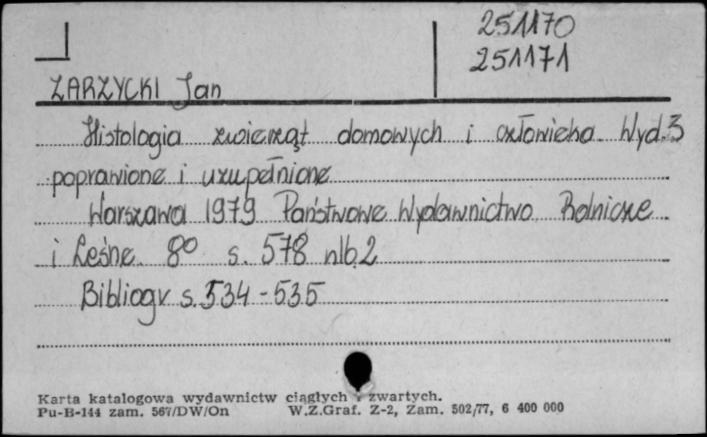 251170
251171
ZARZYCKI Jan
Histologia zwierząt domowych i człowieka Wyd.3
poprawione i uzupełnione
Warszawa 1979 Państwowe Wydawnictwo Rolnicze
i Leśne. 8° s. 578 nlb.2
Bibliogr s.534-535
Karta katalogowa wydawnictw ciągłych i zwartych.
Pu-B-144 zam. 567/DW/On W.Z.Graf. Z-2, Zam. 502/77, 6 400 000